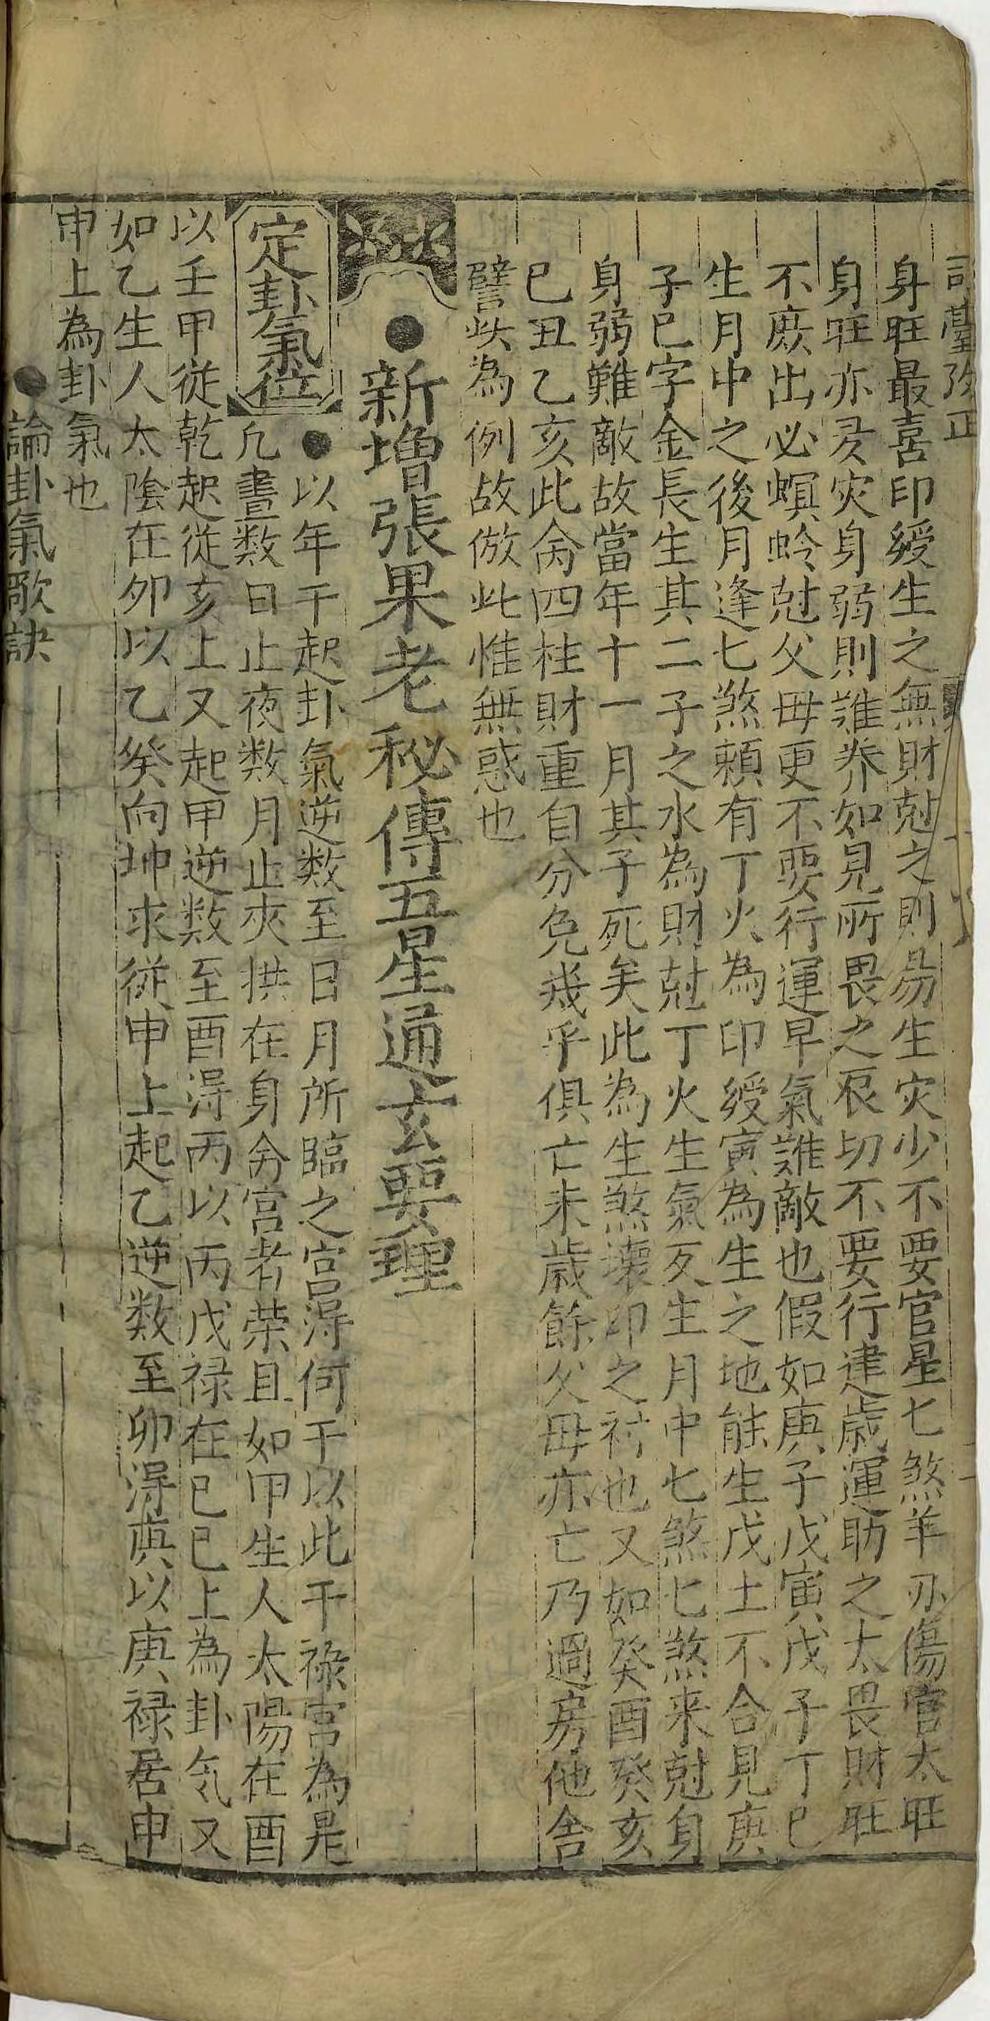 司臺改正
身旺最喜印綬生之無財尅之則昜生灾少不要官星七煞羊刃傷官太旺
身旺亦及灾身弱則難养如見所畏之辰切不要行建歳運助之太畏財旺
不庶出必螟蛉尅父母更不要行運早氣難敵也假如庚子戊寅戊子丁巳
生月中之後月逢七煞頼有丁火為印綬寅為生之地能生戊土不合見庚
子巳字金長生其二子之水為財尅丁火生氣反生月中七煞七煞来尅身
身弱難敵故當年十一月其子死矣此為生煞壞印之禍也又如癸酉癸亥
巳丑乙亥此命四柱財重自分免㡬乎俱亡未歳餘父母亦亡乃過房他舍
譬此為例故倣此惟無惑也
●新增張果老秘傳五星通玄要理
定卦氣位
●以年干起卦氣逆数至日月所臨之宫淂何干以此干禄宫為是
凢晝数日止夜数月止夾拱在身命宫者荣且如甲生人太陽在酉
以壬甲從乾起從亥上又起甲逆数至酉淂丙以丙戊禄在巳巳上為卦気又
如乙生人太隂在卯以乙癸向坤求從申上起乙逆数至卯淂庚以庚禄居申
申上為卦氣也
●論卦氣歌訣